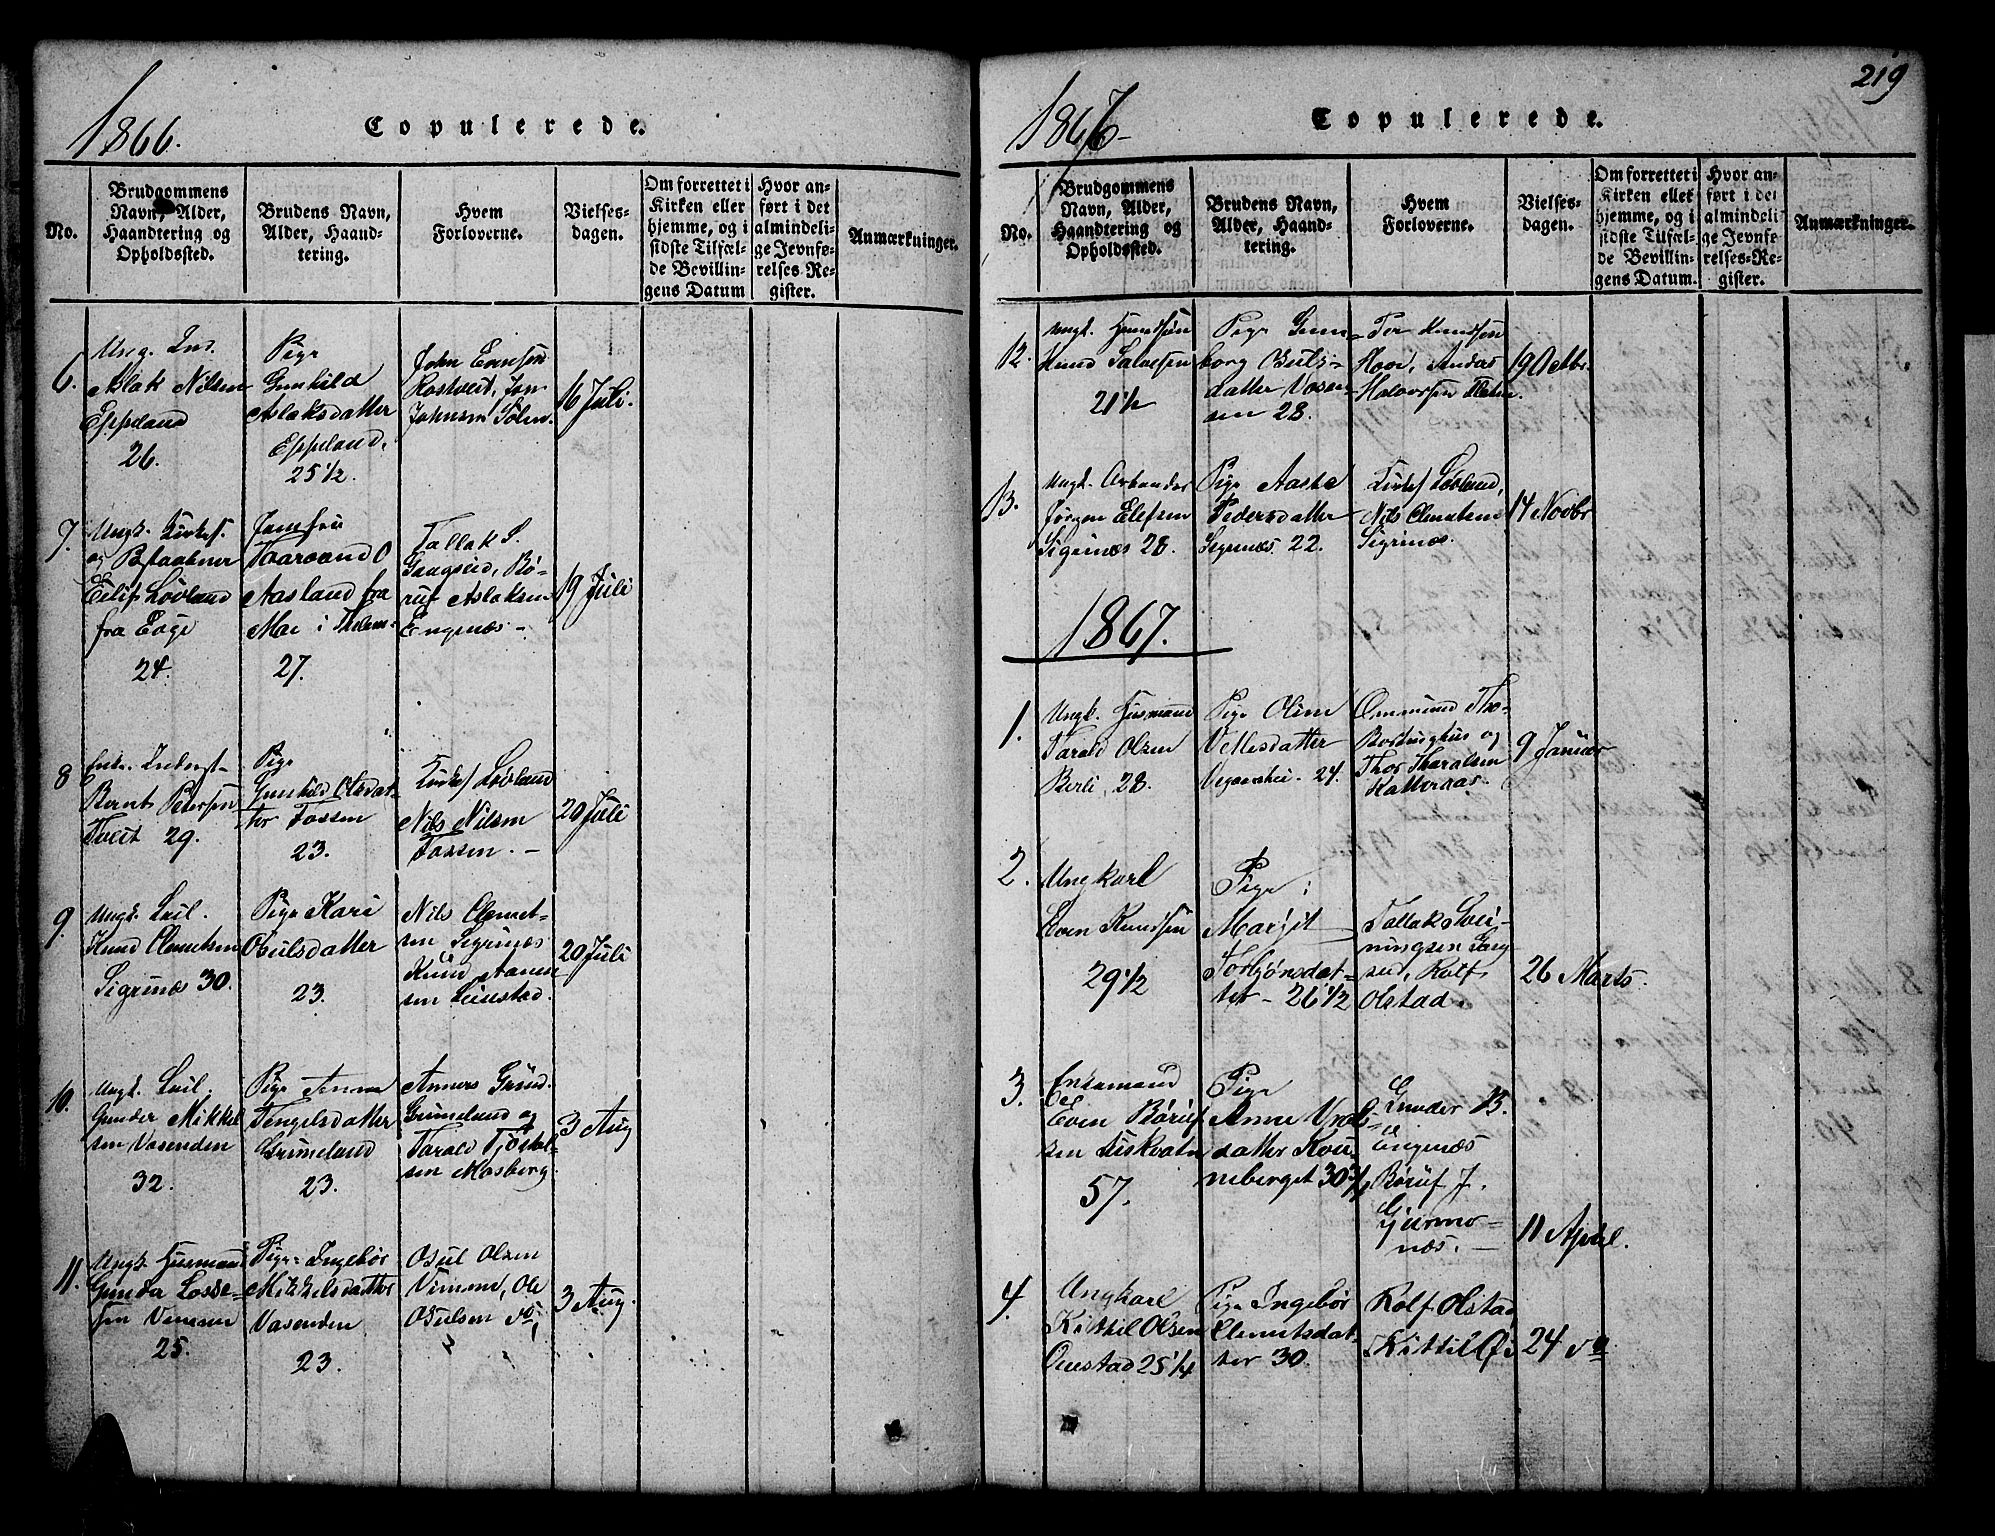 1866.
Copulerede.
No.
Brudgommens
Navn, Alder,
Haandtering og
Opholdssted.
Brudens Navn,
Alder, Haand-
tering.
Hvem
Forloverne.
Vielses-
dagen.
Om forrettet i
Kirken eller
hjemme, og i
sidste Tilfæl-
de Bevillin-
gens Datum
Hvor an-
ført i det
almindeli-
ge Jevnfø-
relses-Re-
gister.
Anmærkninger.
6.
Aslak Nilsen
Eppland
26.
Pige
Gunhild
Aslaksdatter
Eppland.
25 1/2.
John Evensen
Rostveit, Jon
Johnsen
16 Juli.
7.
Ungk.
og
Eilif Lovland
fra Evge
24.
Jomfru
Taarand O
Aasland fra
Moe i Thelem-
27.
Tallak S.
Bø-
ruf Aslaksen
Engenæs -
19 Juli
8
Bernt Petersen
Tveit 29.
Pige
Gunhild Olsdat-
ter Fossen
23.
Lovland
Nils Nilsen
Fossen. -
20 Juli
9.
Ungk.
Knud Clemetsen
Sigrinæs 30.
Pige Kari
Osulsdatter
23.
Nils Clemet-
sen Sigrinæs
Knud
sen
20 Juli
10.
Ungk.
Gunder Mikkel
sen Vasenden
32.
Pige Anne
Tengelsdatter
Grimeland
23.
Anners
Grimeland og
Tarald
sen Mosberg
3 Aug
11.
Ungk. Husmand
Gunder Losse-
25.
Pige Ingebor
Mikkelsdatter
Vasenden
23.
Osul Olsen
Ole
Osulsen do
3 Aug.
219
1866-
Copulerede.
No.
Brudgommens
Navn, Alder,
Haandtering og
Opholdssted.
Brudens Navn,
Alder, Haand-
tering.
Hvem
Forloverne.
Vielses-
dagen.
Om forrettet i
Kirken eller
hjemme, og i
sidste Tilfæl-
de Bevillin-
gens Datum.
Hvor an-
ført i det
almindeli-
ge Jevnfø-
relses-Re-
gister.
Anmærkninger.
12.
Ungk.
Knud Salvesen
21 1/2
Pige Gun-
borg Osuls-
datter Vasen-
den 28.
Ter Knudsen
Hove,
Halvorsen
19 Octbr.
13.
Ungk. Arbeider
Jørgen Elefsen
Sigrinæs 28.
Pige Aaste
Pedersdatter
Sigrinæs 22.
Lovland,
Nils Clemetsen
Sigrinæs.
14 Novbr
1867.
1.
Ungk. Husmand
Tarald Olsen
Berli, 28.
Pige Oline
Vellesdatter
24.
Ommund Tho-
og
Thor Tharalsen
Katteraas.
9 Januar
2.
Ungkarl
Even Knudsen
29 1/2
Pige
Margit
Torbjønsdat-
ter - 26 1/2
Tallak Svei-
ningsen
Rolf
Olstad.
26 Marts.
3.
Enkemand
Even Børuf
sen
57.
Pige
Anne
datter
neberget 30 3/4
Gunder B.
Engenæs
Børuf J.
næs. -
11 April.
4.
Ungkarl
Kittil Olsen
25 1/4
Pige Ingebor
Clemetsdat-
ter 30.
Rolf Olstad
Kittil
24 do